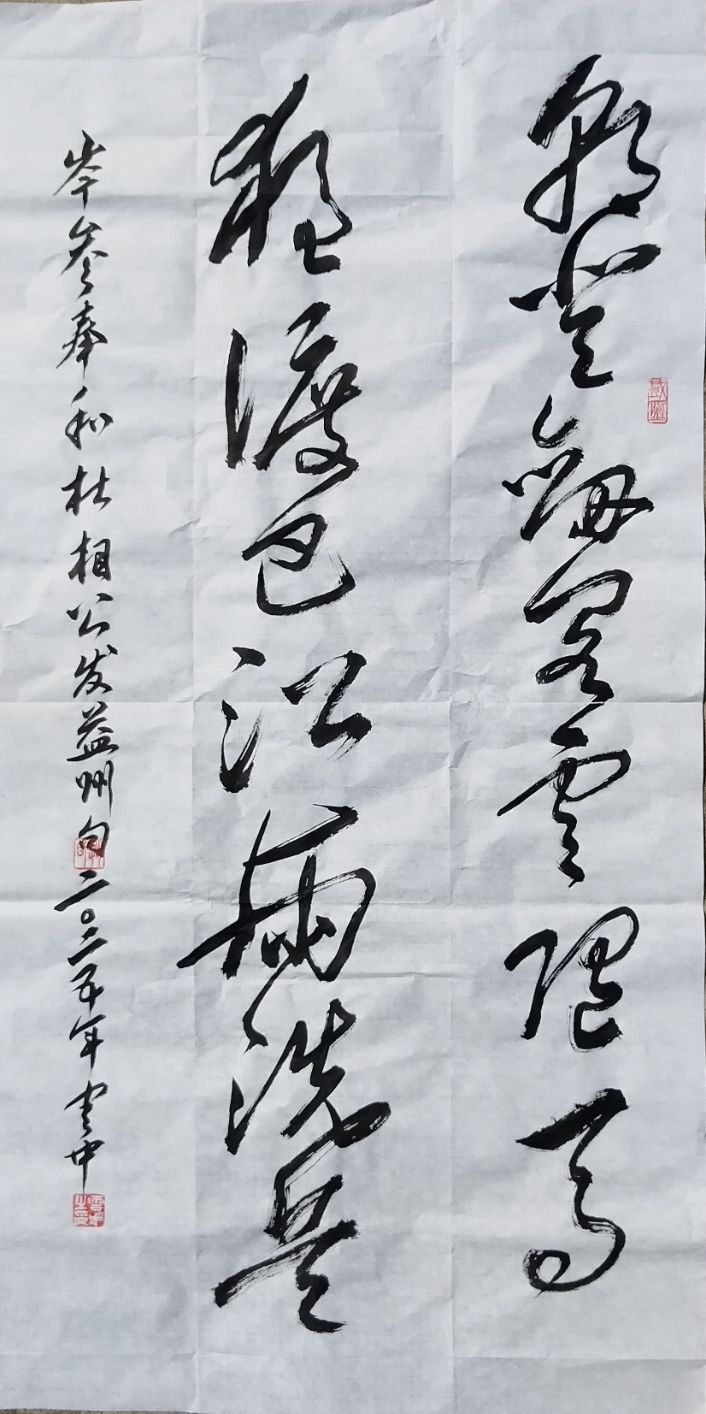 朝登劔阁雲随马
夜渡巴江雨洗兵
岑参奉和杜相公发益州句二〇二五年